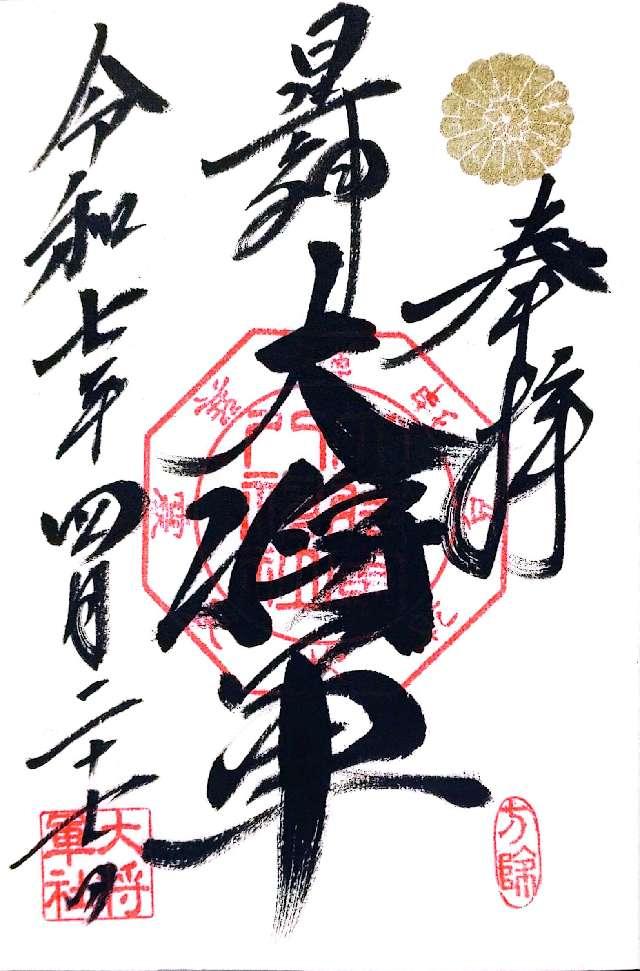 奉拝
星神
大将軍
令和七年四月二十七日
方除
大将軍社